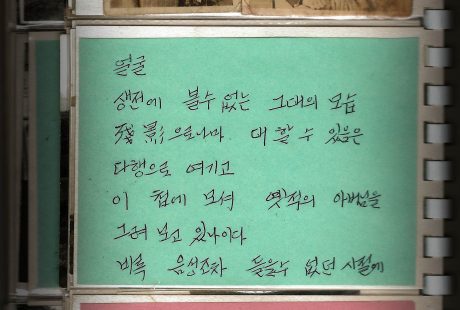 얼굴
생전에 볼수 없는 그대의 모습
殘影으로나마 대 할 수 있음은
다행으로 여기고
이 첩에 모셔 옛적의 아버님을
그려 보고 있나이다
비록 음성조차 들을수 없던 시절에